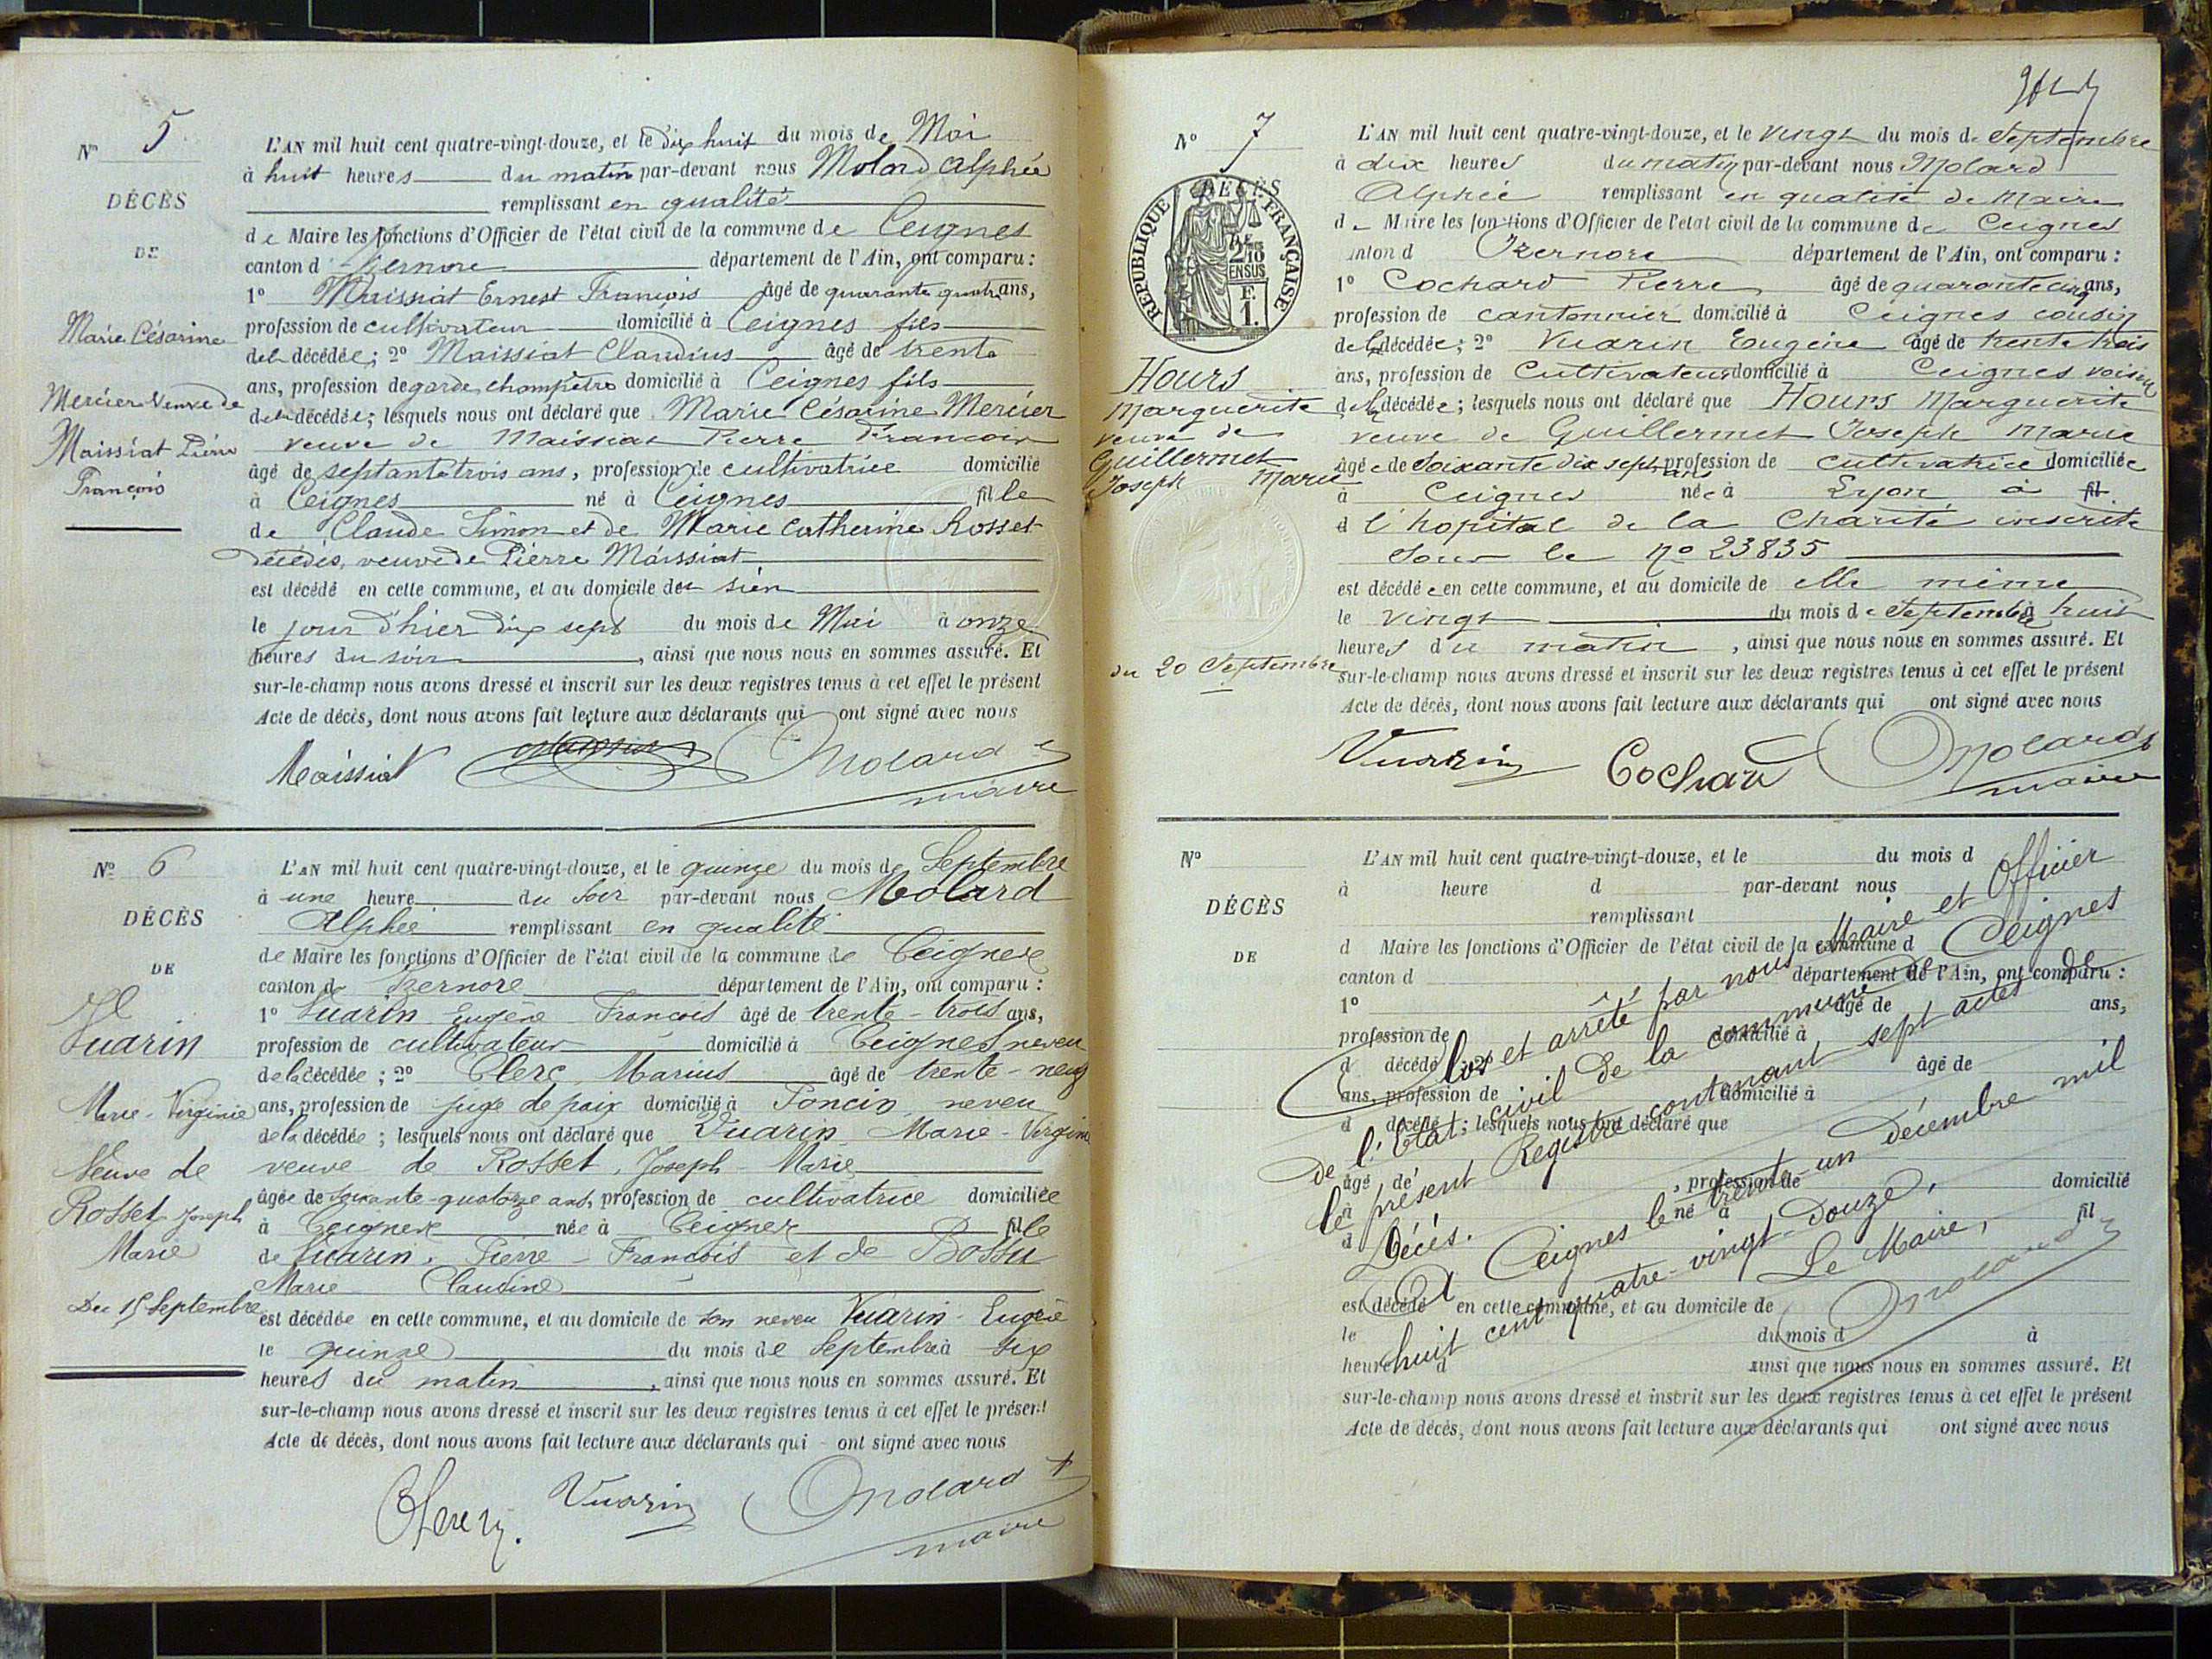 N° 5
DÉCÈS
DE
Marie Césarine
Mercier Veuve de
Maissiat Pierre
François
L'AN mil huit cent quatre-vingt-douze, et le dix huit du mois de Mai
à huit heures du matin par-devant nous Molard Alphée
remplissant en qualité
de Maire les fonctions d'Officier de l'état civil de la commune de Ceignes
canton d'Izernore département de l'Ain, ont comparu :
1° Maissiat Ernest François âgé de quarante quatre ans,
profession de cultivateur domicilié à Ceignes fils
de la décédée ; 2° Maissiat Claudius âgé de trente
ans, profession de garde champêtre domicilié à Ceignes fils
de la décédée ; lesquels nous ont déclaré que Marie Césarine Mercier
veuve de Maissiat Pierre Francois
âgé de septante trois ans, profession de cultivatrice domicilié
à Ceignes né à Ceignes fille
de Claude Simon et de Marie Catherine Rosset
décédés, veuve de Pierre Maissiat
est décédé en cette commune, et au domicile du sien
le jour d'hier dix sept du mois de Mai à onze
heures du soir, ainsi que nous nous en sommes assuré. Et
sur-le-champ nous avons dressé et inscrit sur les deux registres tenus à cet effet le présent
Acte de décès, dont nous avons fait lecture aux déclarants qui ont signé avec nous
Maissiat Molard
maire
N° 6
DÉCÈS
DE
Vuarin
Marie-Virginie
Veuve de
Rosset Joseph
Marie
Du 15 Septembre
L'AN mil huit cent quatre-vingt-douze, et le quinze du mois de Septembre
à une heure du soir par-devant nous Molard
Alphée remplissant en qualité
de Maire les fonctions d'Officier de l'état civil de la commune de Ceignes
canton d Izernore département de l'Ain, ont comparu :
1° Vuarin Eugène François âgé de trente-trois ans,
profession de cultivateur domicilié à Ceignes neveu
de la décédée ; 2° Clerc Marius âgé de trente-neuf
ans, profession de juge de paix domicilié à Poncin neveu
de la décédée ; lesquels nous ont déclaré que Vuarin Marie-Virginie
veuve de Rosset, Joseph-Marie
âgée de soixante-quatorze ans, profession de cultivatrice domiciliée
à Ceignes née à Ceignes fille
de Vuarin, Pierre-François et de Bossu
Marie Claudine
est décédée en cette commune, et au domicile de son neveu Vuarin Eugène
le quinze du mois de Septembre à six
heures du matin, ainsi que nous nous en sommes assuré. Et
sur-le-champ nous avons dressé et inscrit sur les deux registres tenus à cet effet le présent
Acte de décès, dont nous avons fait lecture aux déclarants qui ont signé avec nous
Vuarin Molard
maire
N° 7
RÉPUBLIQUE FRANÇAISE
DÉCÈS
2/10
EN SUS
F.
1.
Hours
Marguerite
veuve de
Guillermet
Joseph Marie
du 20 Septembre
L'AN mil huit cent quatre-vingt-douze, et le vingt du mois de Septembre
à dix heures du matin par-devant nous Molard
Alphée remplissant en qualité de Maire
de Maire les fonctions d'Officier de l'état civil de la commune de Ceignes
canton d Izernore département de l'Ain, ont comparu :
1° Cochard Pierre âgé de quarante cinq ans,
profession de cantonnier domicilié à Ceignes cousin
de la décédée ; 2° Vuarin Eugène âgé de trente trois
ans, profession de Cultivateur domicilié à Ceignes voisin
de la décédée ; lesquels nous ont déclaré que Hours Marguerite
veuve de Guillermet Joseph Marie
âgée de Soixante dix sept ans profession de cultivatrice domiciliée
à Ceignes née à Lyon à fil
d l'hopital de la Charité inscrite
sous le n° 23835
est décédée en cette commune, et au domicile de elle même
le vingt du mois de Septembre à huit
heures du matin, ainsi que nous nous en sommes assuré. Et
sur-le-champ nous avons dressé et inscrit sur les deux registres tenus à cet effet le présent
Acte de décès, dont nous avons fait lecture aux déclarants qui ont signé avec nous
Vuarin Cochard Molard
maire
N°
DÉCÈS
DE
L'AN mil huit cent quatre-vingt-douze, et le du mois d
à heure d par-devant nous
remplissant
d Maire les fonctions d'Officier de l'état civil de la commune d
canton d département de l'Ain, ont comparu :
1° âgé de ans,
profession de domicilié à
d décédé ; 2° âgé de
ans, profession de domicilié à
d décédé ; lesquels nous ont déclaré que
âgé de , profession de domicilié
à né à fil
d
est décédé en cette commune, et au domicile de
le du mois d à
heure d ainsi que nous nous en sommes assuré. Et
sur-le-champ nous avons dressé et inscrit sur les deux registres tenus à cet effet le présent
Acte de décès, dont nous avons fait lecture aux déclarants qui ont signé avec nous
Clos et arrêté par nous Maire et Officier
de l'Etat civil de la commune de Ceignes
le présent Registre contenant sept actes de
Décès.
A Ceignes le trente-un Décembre mil
huit cent quatre-vingt-Douze,
Le Maire,
Molard